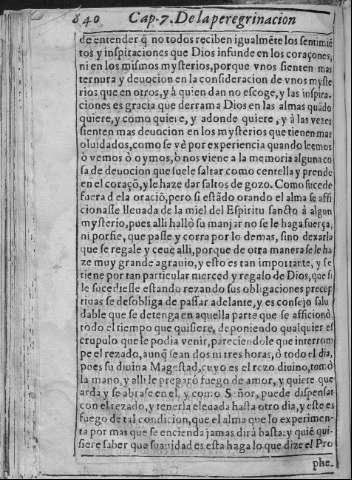 840 Cap.7. De la peregrinacion
de entender q̃ no todos reciben igualmẽte los sentimiẽ
tos y inspiraciones que Dios infunde en los coraçones,
ni en los mismos mysterios, porque vnos sienten mas
ternura y deuocion en la consideracion de vnos myste
rios que en otros, y à quien dan no escoge, y las inspira
ciones es gracia que derrama Dios en las almas quãdo
quiere, y como quiere, y adonde quiere, y à las vezes
sienten mas deuocion en los mysterios que tienen mas
oluidados, como se vè por experiencia quando leemos
ò vemos ò oymos, ò nos viene a la memoria alguna co
sa de deuocion que suele saltar como centella y prende
en el coraçõ, y le haze dar saltos de gozo. Como sucede
fuera d ela oraciõ, pero si estãdo orando el alma se affi
cionasse lleuada de la miel del Espiritu sancto à algun
mysterio, pues alli hallò su manjar no se le haga fuerça,
ni porfie, que passe y corra por lo demas, sino dexarla
que se regale y ceue alli, porque de otra manera se le ha
ze muy grande agrauio, y esto es tan importante, y se
tiene por tan particular merced y regalo de Dios, que si
le sucediesse estando rezando sus obligaciones precep
tiuas se desobliga de passar adelante, y es consejo salu
dable que se detenga en aquella parte que se afficionò
todo el tiempo que quisiere, deponiendo qualquier es
crupulo que le podia venir, pareciendole que interrom
pe el rezado, aunq̃ sean dos ni tres horas, ò todo el dia,
pues su diuina Magestad, cuyo es el rezo diuino, tomò
la mano, y alli le preparò fuego de amor, y quiere que
arda y se abrase en el, y como Señor, puede dispensar
con el rezado, y tenerla eleuada hasta otro dia, y este es
fuego de tal condicion, que el alma que lo experimen
ta por mas que se encienda jamas dirà basta: y quiẽ qui
siere saber que suauidad es esta haga lo que dize el Pro
phe.